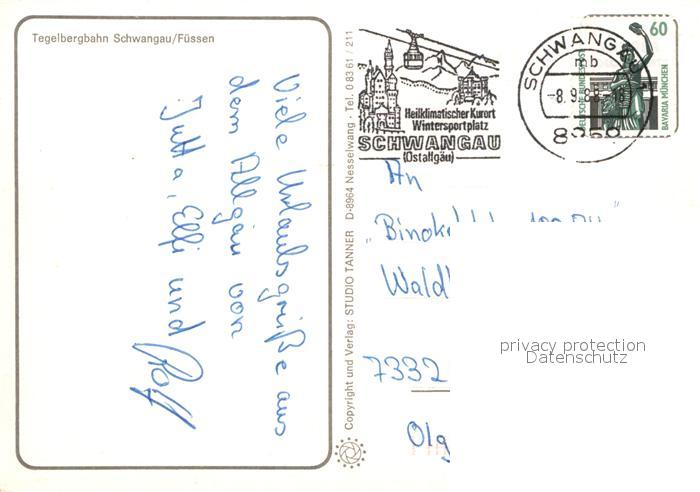 Tegelbergbahn Schwangau/Füssen
Viele Urlaubsgrüße aus
dem Allgäu von
Jutta, Elfi und
Rolf
Copyright und Verlag: STUDIO TANNER D-8964 Nesselwang · Tel. 0 83 61 / 211
Heilklimatischer Kurort
Wintersportplatz
SCHWANGAU
(Ostallgäu)
SCHWANGAU
mb
-8.9.
60
DEUTSCHE BUNDESPOST
BAVARIA MÜNCHEN
An
Wald
7332
privacy protection
Datenschutz